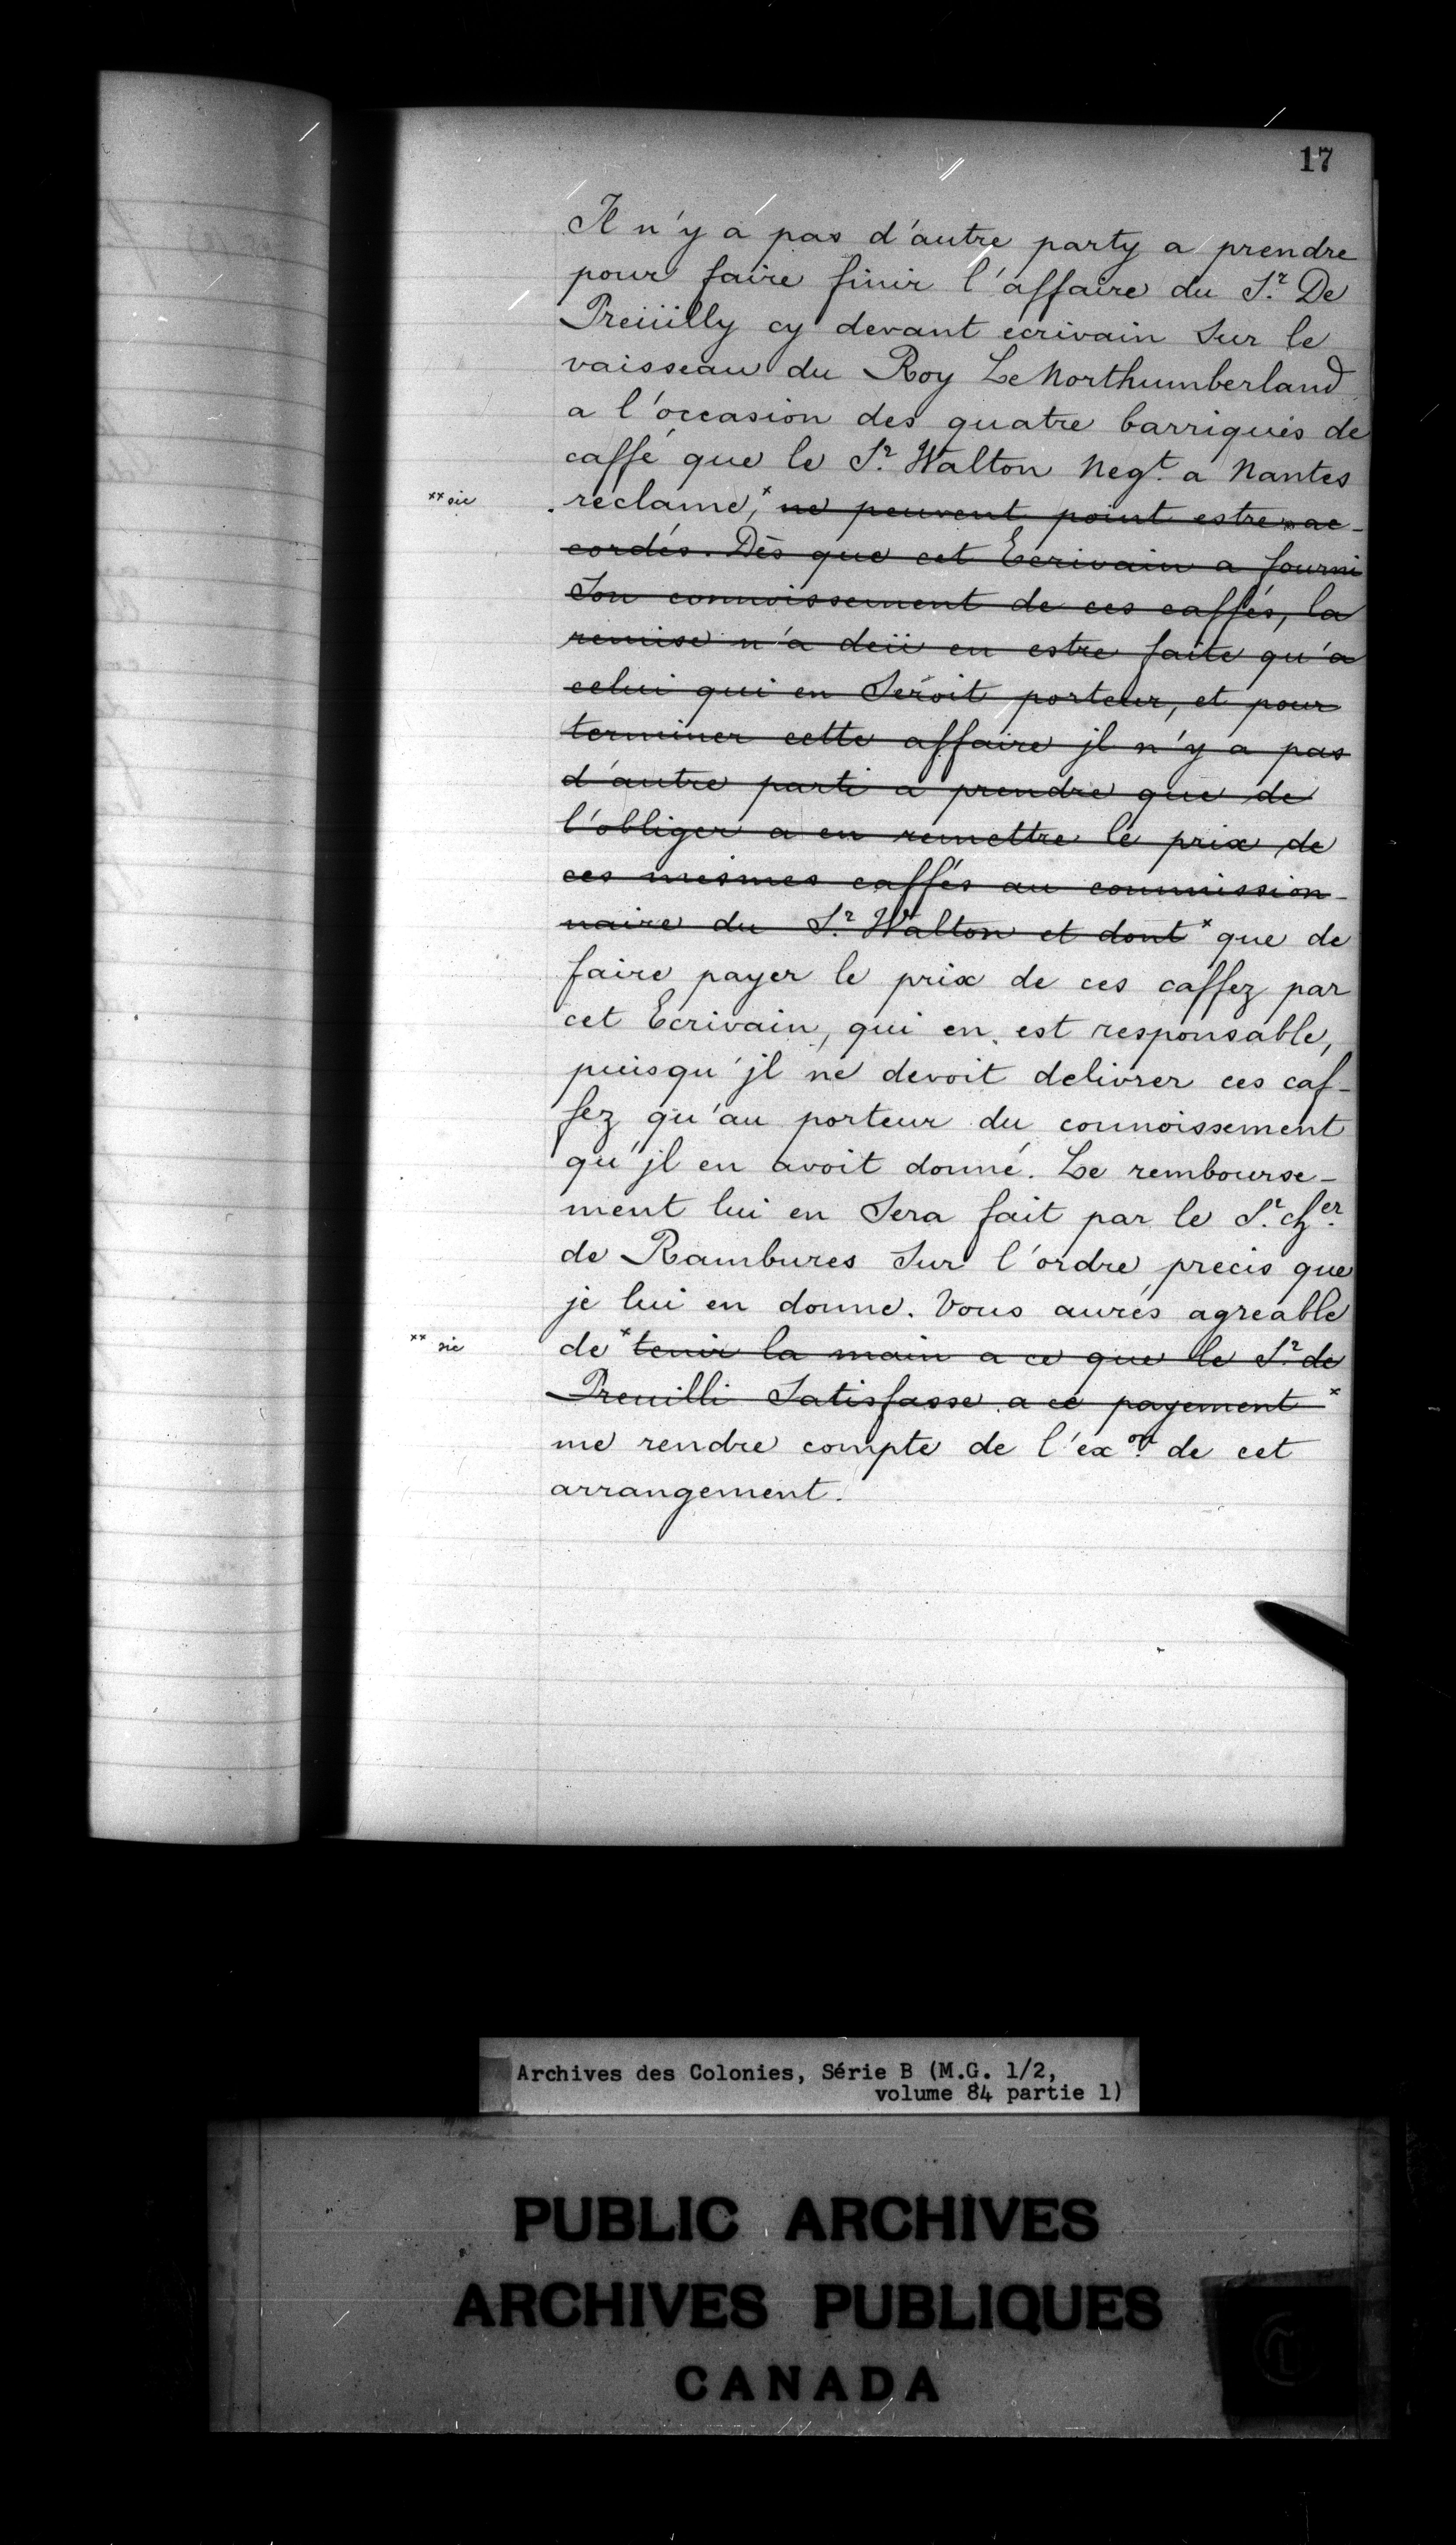 17
Il n'y a pas d'autre party a prendre
pour faire finir l'affaire du S.r De
Preüilly cy devant ecrivain Sur le
vaisseau du Roy Le Northumberland
a l'occasion des quatre barriques de
caffé que le S.r Walton Neg.t a Nantes
** sic
reclame,* ne peuvent point estre ac-
cordés. Dès que cet Ecrivain a fourni
Son connoissement de ces caffés, la
remise n'a deü en estre faite qu'a
celui qui en Seroit porteur, et pour
terminer cette affaire jl n'y a pas
d'autre parti a prendre que de
l'obliger a en remettre le prix de
ces mesmes caffés au commission-
naire du S.r Walton et dont* que de
faire payer le prix de ces caffez par
cet Ecrivain, qui en est responsable,
puisqu'jl ne devoit delivrer ces caf-
fez qu'au porteur du connoissement
qu'jl en avoit donné. Le rembourse-
ment lui en Sera fait par le S.r Ch.er
de Rambures Sur l'ordre precis que
je lui en donne. Vous aurés agreable
** sic
de *tenir la main a ce que le S.r de
Preuilli Satisfasse a ce payement*
me rendre compte de l'ex.on de cet
arrangement.
Archives des Colonies, Série B (M.G. 1/2,
volume 84 partie 1)
PUBLIC ARCHIVES
ARCHIVES PUBLIQUES
CANADA